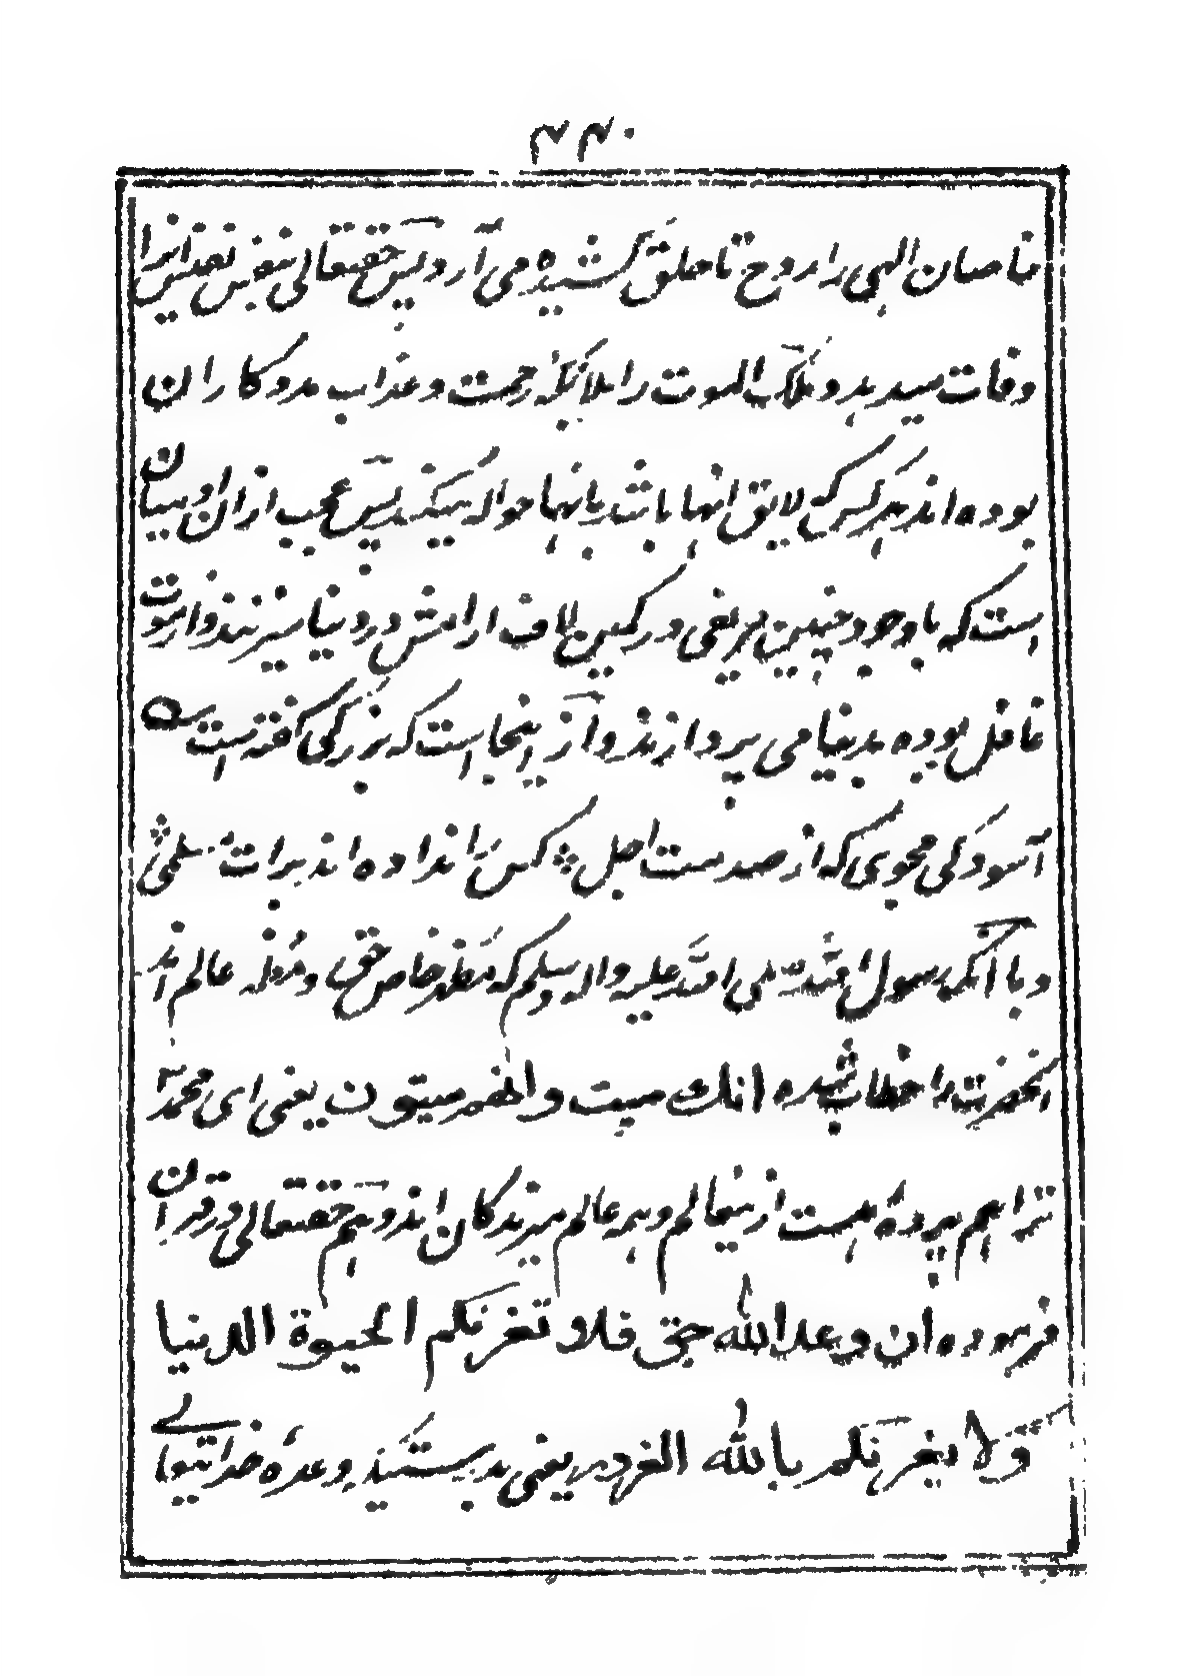 ۲۲۰
خاصان الهی را روح تا حلق کشیده می آرد و پس حقیقتعالی بنفس نفیس انرا
وفات میدهد و ملک الموت را ملایکه رحمت و عذاب مددکاران
بوده اند هر کس لایق انها باشد بانها حواله میکند پس عجب از ان ادمیان
است که باوجود چنین حریفی در کمین لاف ارامش در دنیا میزنند و از موت
غافل بوده بدنیا می پردازند و از اینجاست که بزرگی گفته است
آسودگی مجوی که از صدمت اجل کس را نداده اند برات مسلمی
و با آنکه رسول الله صلی الله علیه واله وسلم که مظهر خاص حق و مفخر عالم اند
انحضرت را خطاب شده انك ميت وانهم ميتون یعنی ای محمد
ترا هم پرده هست ازینعالم و همه عالم میرندکان اند و هم حقتعالی در قران
فرموده ان وعد الله حق فلا تغرنكم الحيوة الدنيا
ولا يغرنكم بالله الغرور یعنی بدرستیکه وعده خدایتعالی